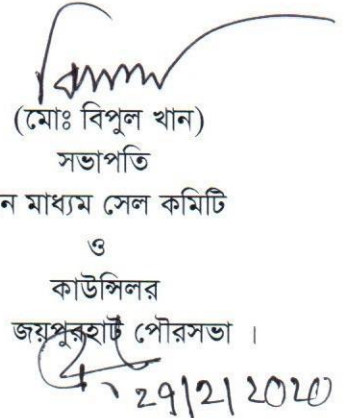 (মোঃ বিপুল খান)
সভাপতি
ন মাধ্যম সেল কমিটি
ও
কাউন্সিলর
জয়পুরহাট পৌরসভা ।
29/2/2020